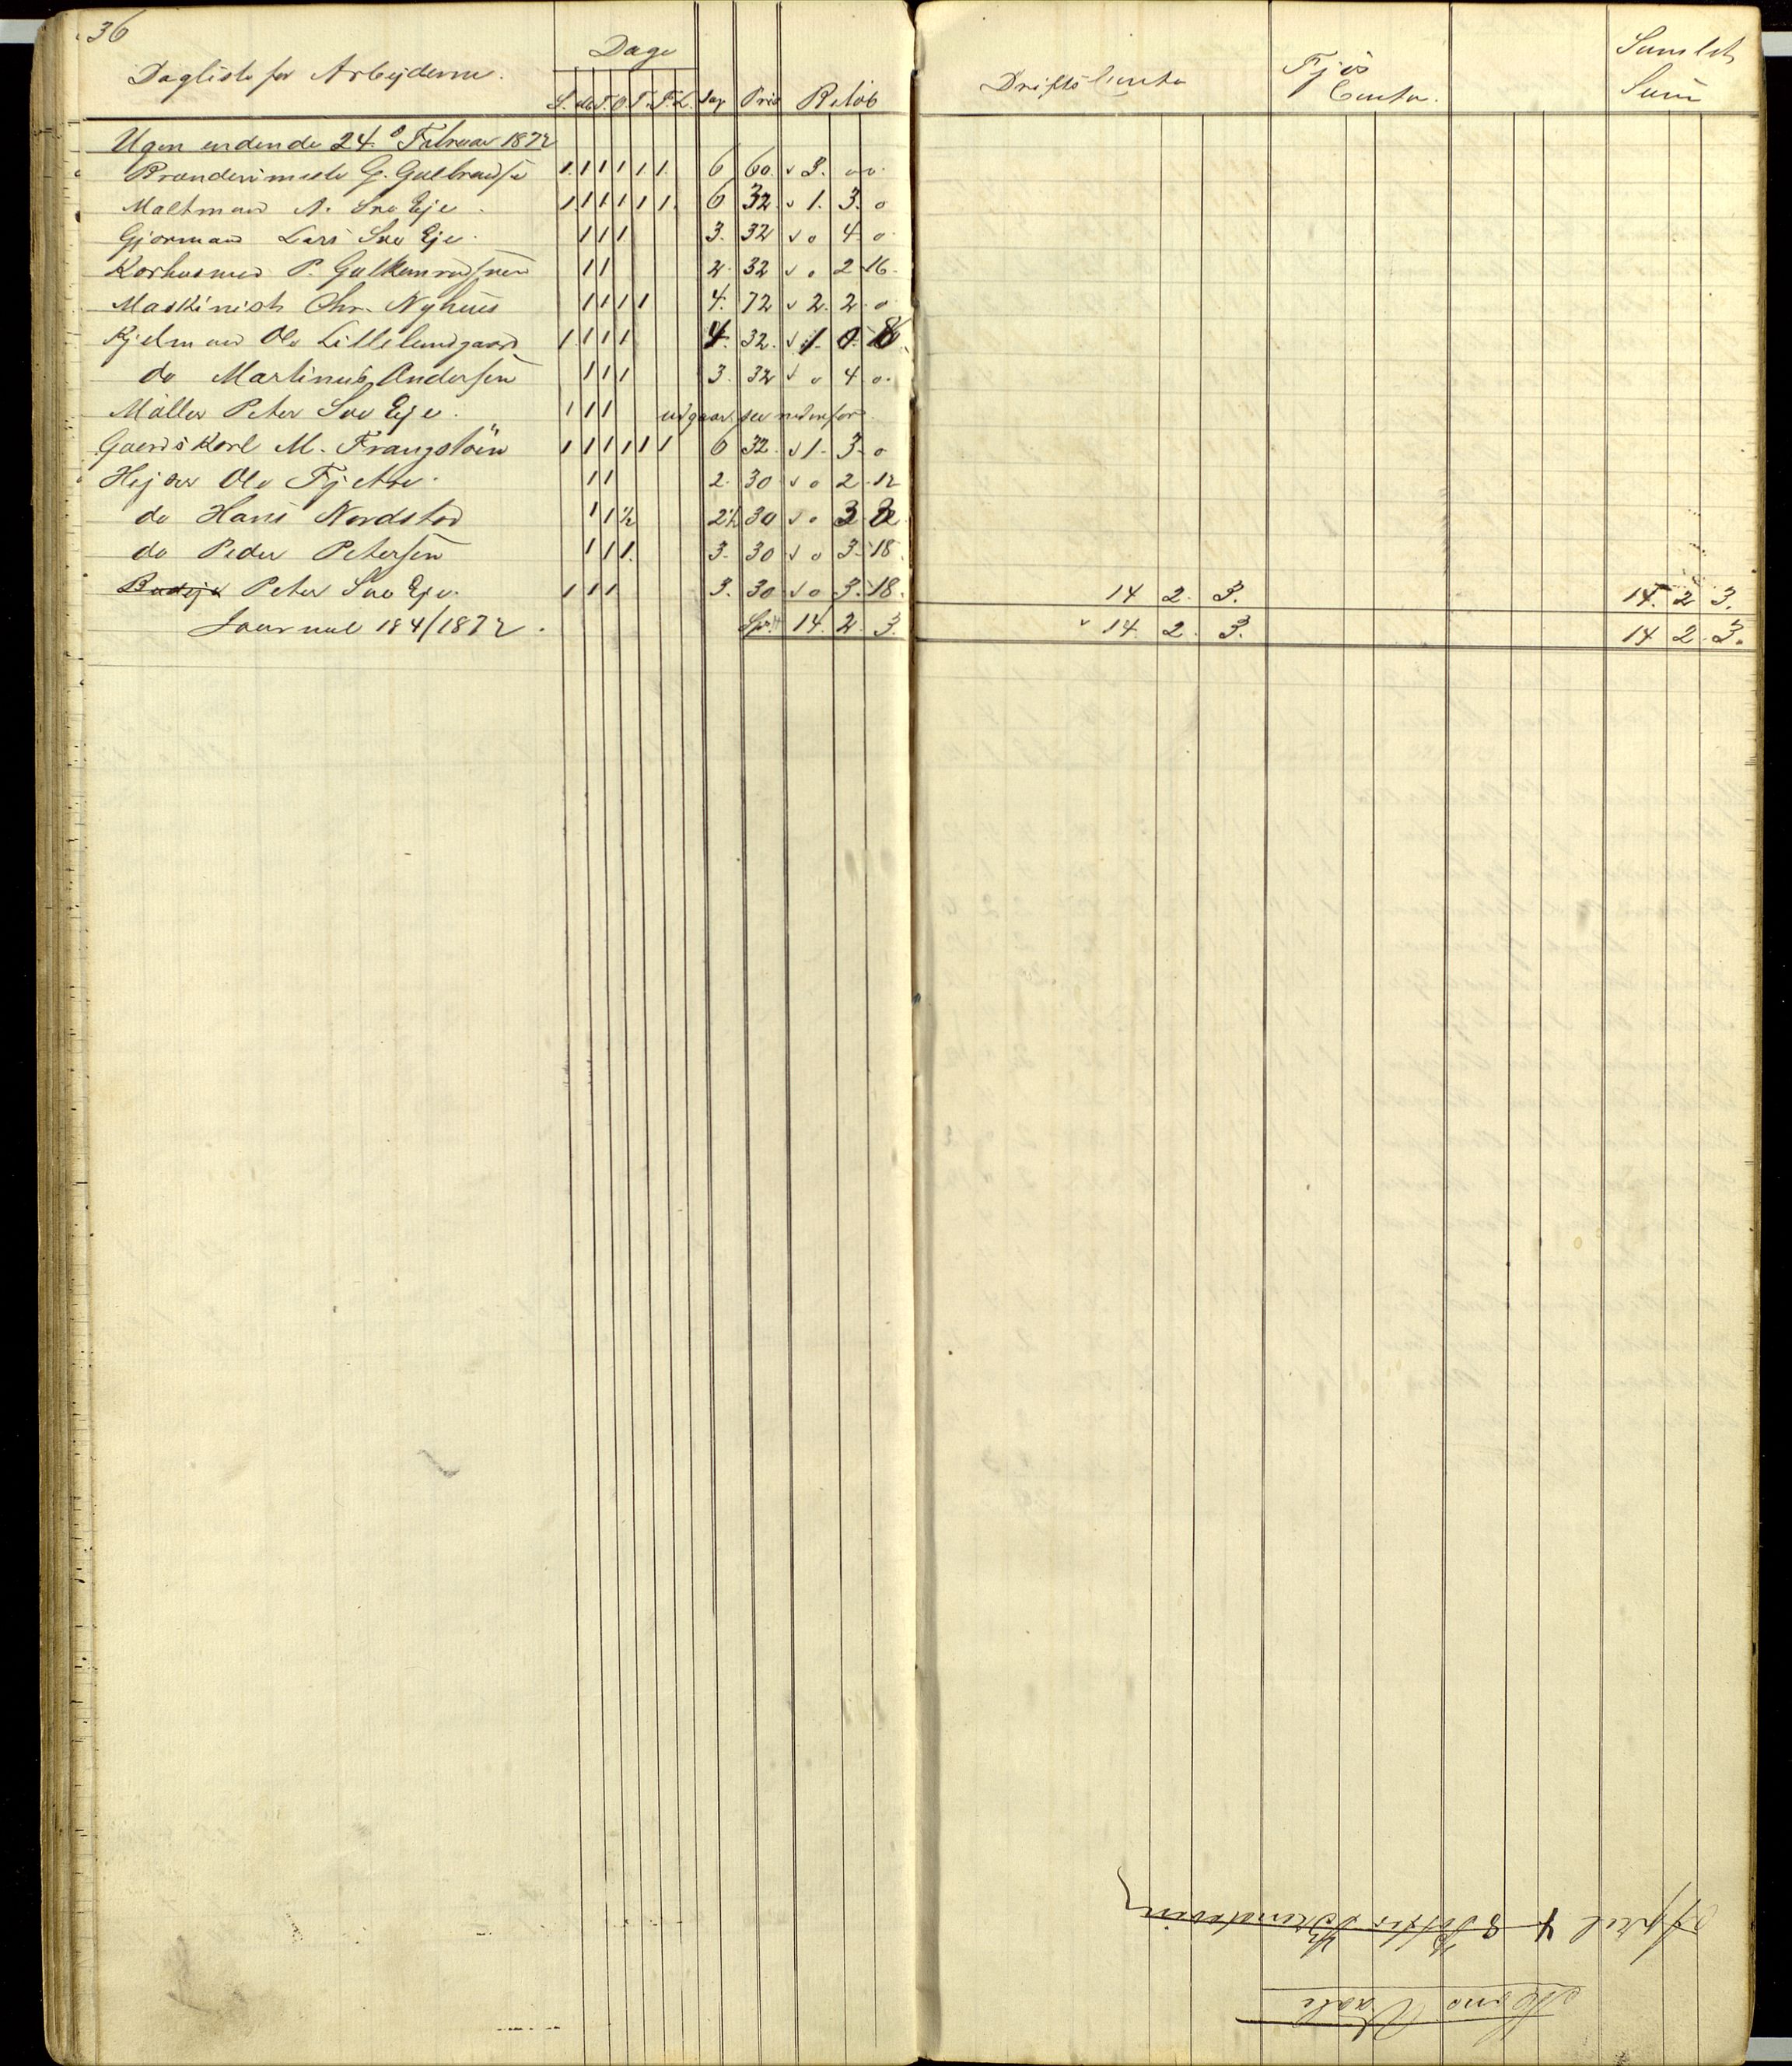 36
Dagliste for Arbejderne.
Dage
S. M. T. O. T. F. L. Dag Pris Beløb
Driftsconto
Fjøs Conto.
Samlet Sum
Ugen endende 24de Februar 1872
Brænderimester G. Gulbrandsen 1. 1 1 1 1 1. 6 60. v 3. 0 0.
Maltmand A. Svo Eje. 1. 1 1 1 1 1. 6 32 v 1. 3. 0
Gjørmand Lars Svo Eje. 1 1 1 3. 32 v 0 4. 0
Karhusmd P. 1 1 2. 32 v 0 2 16.
Maskinist Chr. Nyhuus 1 1 1 1 4. 72 v 2. 2. 0
Kjelmand Ole Lillelundgaard 1. 1 1 1 4. 32. v 1. 0. 8
do Martinus Andersen 1 1 1 3. 32 v 0 4 0.
Møller Peter Svo Eje. 1 1 1 udgaar, see nedenfor
Gaardskarl M. Frangstøen 1 1 1 1 1 1 6 32. v 1. 3. 0
Hejser Ole Fjetre. 1 1 2. 30 v 0 2. 12
do Hans Nordstad 1 1 ½ 2½ 30 v 0 3
do Peder Petersen 1 1 1. 3. 30 v 0 3. 18.
Peter Svo Eje. 1 1 1 3. 30 v 0 3. 18. 14 2. 3. 14. 2 3.
Journal 184/1872. Spd. 14. 2. 3. v 14. 2. 3. 14 2. 3.
April 4 8 Potter Brændeviin